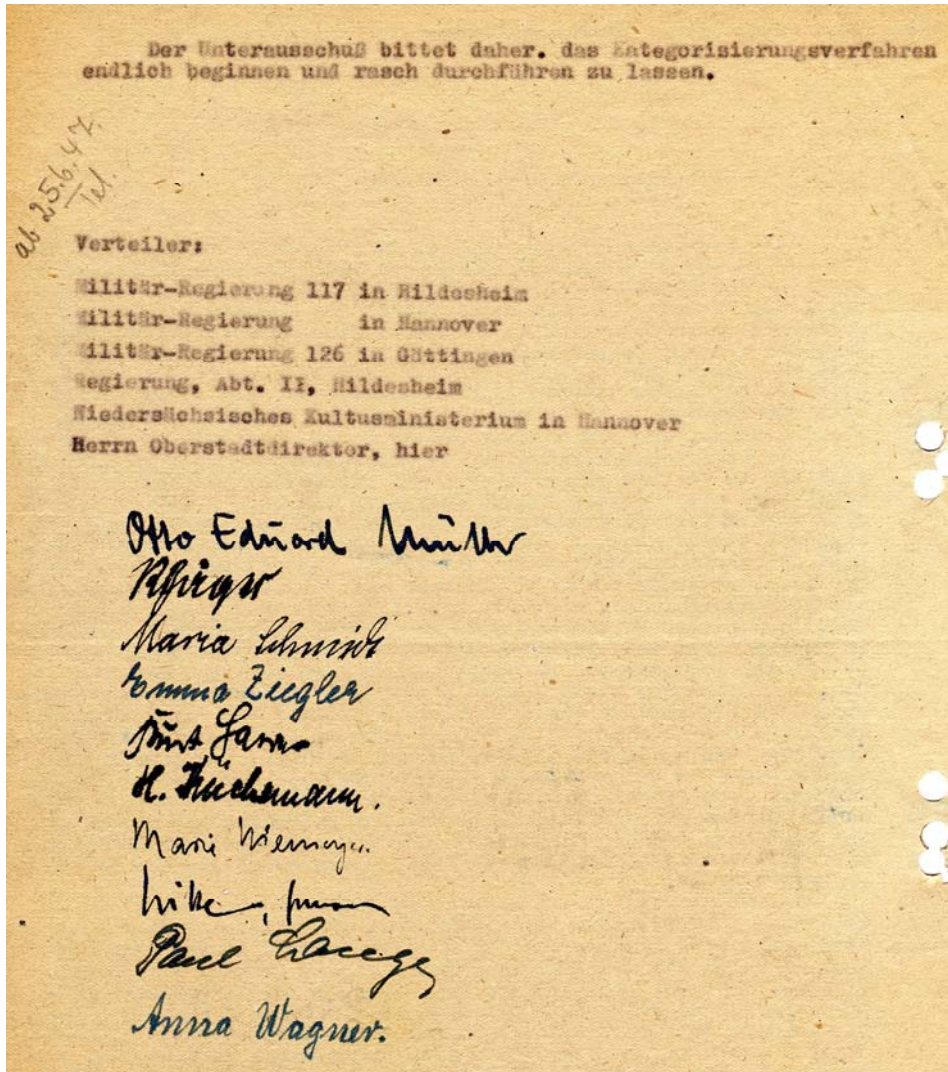 Der Unterausschuß bittet daher. das Kategorisierungsverfahren
endlich beginnen und rasch durchführen zu lassen.
ab 25.6.47.
Tel.
Verteiler:
Militär-Regierung 117 in Hildesheim
Militär-Regierung in Hannover
Militär-Regierung 126 in Göttingen
Regierung, Abt. II, Hildesheim
Niedersächsisches Kultusministerium in Hannover
Herrn Oberstadtdirektor, hier
Otto Eduard Müller
Maria Schmidt
Emma Ziegler
Kurt
H. Küchemann.
Marie Niemeyer
Paul Lange
Anna Wagner.